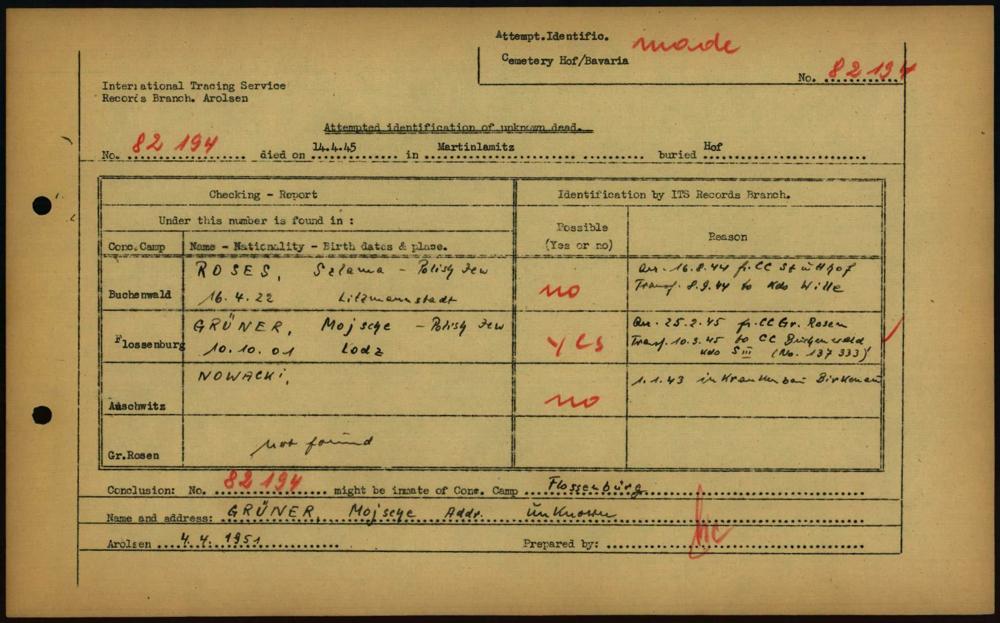 Attempt.Identific. made
Cemetery Hof/Bavaria
No. 82194
International Tracing Service
Records Branch. Arolsen
Attempted identification of unknown dead.
No. 82 194 died on 14.4.45 in Martinlamitz buried Hof
Checking - Report
Identification by ITS Records Branch.
Under this number is found in :
Possible
(Yes or no)
Reason
Conc.Camp Name - Nationality - Birth dates & place.
Buchenwald
ROSES, Szlama - Polish Jew
16.4.22 Litzmannstadt
no
Arr. 16.8.44 fr. CC Stutthof
Transf. 8.9.44 to Kdo Wille
Flossenburg
GRÜNER, Mojsche - Polish Jew
10.10.01 Lodz
yes
Arr. 25.2.45 fr. CC Gr. Rosen
Transf. 10.3.45 to CC Buchenwald
Kdo S III (No. 137 333)
Auschwitz
NOWACKI,
no
1.1.43 in Krankenbau Birkenau
Gr.Rosen
not found
Conclusion: No. 82194 might be inmate of Conc. Camp Flossenbürg
Name and address: GRÜNER, Mojsche Addr. Unknown
Arolsen 4.4.1951 Prepared by: